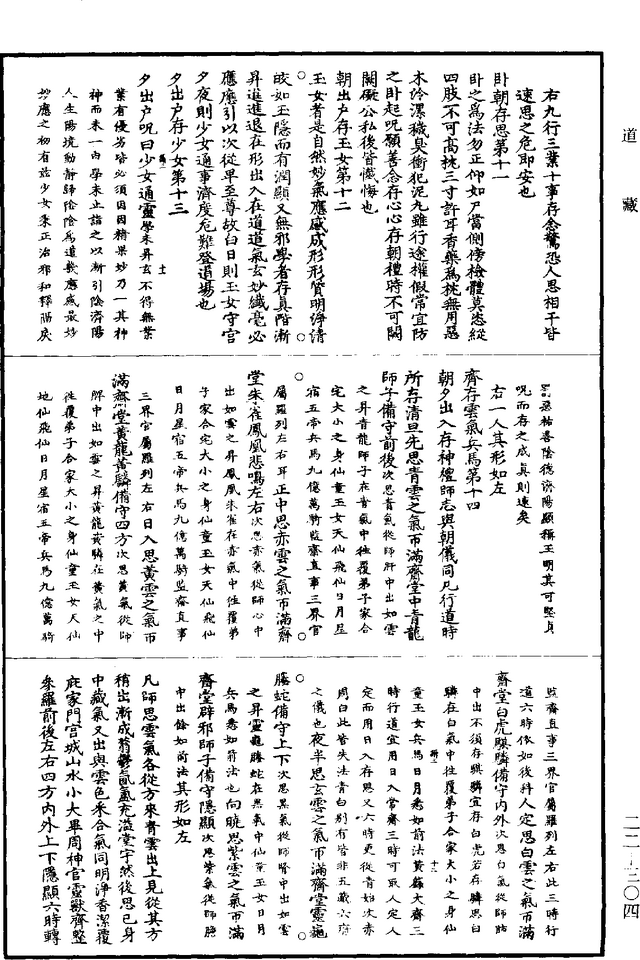 道藏
右九行三業十事存念驚恐人思相干皆
速思之危即安也
卧朝存思第十一
卧之為法勿正仰如尸當側傍檢體莫恣縱
四肢不可高枕三寸許耳香藥為枕無用惡
木冷漯穢臭衝犯泥丸雖行途權假常宜防
之卧起呪願善念存心心存朝禮時不可闕
闕礙公私後皆懺悔也
朝出戶存玉女第十二
玉女者是自然妙氣應感成形形質明淨清
皎如玉隱而有潤顯又無邪學者存真階漸
昇進進退在形出入在道道氣玄妙纖毫必
應應引以次從早至尊故白日則玉女守官
夕夜則少女通事濟度危難登道場也
夕出戶存少女第十三
夕出戶呪曰少女通靈學未昇玄不得無業
業有優劣皆必須因因精果妙乃一其神
神而未一由學未止詣之以漸引陰濟陽
人生陽境動靜歸陰陰為道機應感最妙
妙應之初有茲少女柔正治邪和釋猫戾
罰惡祐善陰德濟陽顯稱玉明其可堅貞
呪而存之成真則速矣
右一人其形如左
齊存雲氣兵馬第十四
朝夕出入存神禮師志與朝儀同凡行道時
所存清旦先思青雲之氣帀滿齋堂中青龍
師子備守前後次思青氣從師肝中出如雲
之昇青龍師子在青氣中往覆弟子家合
宅大小之身仙童玉女天仙飛仙日月星
宿五帝兵馬九億萬騎監齋直事三界官
屬羅列左右耳正中思赤雲之氣帀滿齋
堂朱雀鳳凰悲鳴左右次思赤氣從師心中
出如雲之昇鳳凰朱雀在赤氣中往覆弟
子家合宅大小之身仙童玉女天仙飛仙
日月星宿五帝兵馬九億萬騎監齋直事
三界官屬羅列左右日入思黃雲之氣帀
滿齋堂黃龍黃驎備守四方次思黃氣從師
脾中出如雲之昇黃龍黃驎在黃氣之中
往覆弟子合家大小之身仙童玉女天仙
地仙飛仙日月星宿五帝兵馬九億萬騎
監齋直事三界官屬羅列左右此三時行
道六時依如後科人定思白雲之氣帀滿
齋堂白虎騏驎備守內外次思白氣從師肺
中出不須存騏驎宜存白虎若存驎思白
驎在白氣中往覆弟子合家大小之身仙
童玉女兵馬日月悉如前法黃籙大齋三
時行道宜用日入常齋三時可取人定人
定而用日入存思又六時更從青始次赤
周白此皆失法青白別有皆非五藏六府
之儀也夜半思玄雲之氣帀滿齋堂靈龜
螣蛇備守上下次思黑氣從師腎中出如雲
之昇靈龜螣蛇在黑氣中仙童玉女日月
兵馬悉如前法也向曉思紫雲之氣帀滿
齋堂辟邪師子備守隱顯次思紫氣從師膽
中出餘如前法其形如左
凡師思雲氣各從方來青雲出上見從其方
稍出漸成蓊鬱氤氳充溢堂宇然後思已身
中藏氣又出與雲色釆合氣同明淨香潔覆
庇家門宮城山水小大畢周神官靈獸齊整
參羅前後左右四方內外上下隱顯六時轉
二二－三〇四